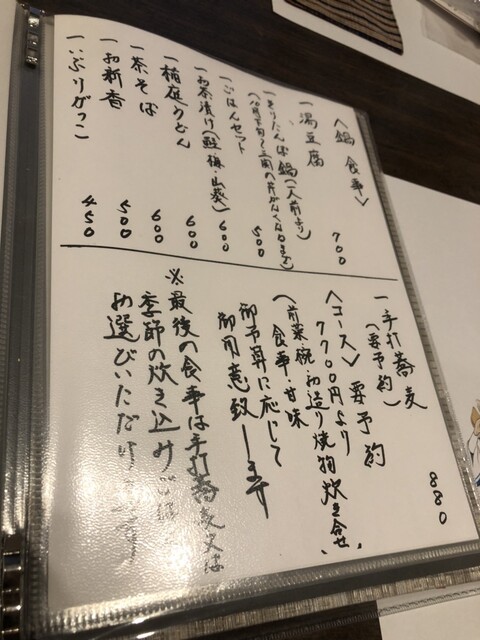 〈鍋 食事〉
一湯豆腐 700
一きりたんぽ鍋(一人前より)
(10月下旬〜三関の芹がなくなるまで)
一ごはんセット 500
一お茶漬け(鮭・梅・山葵) 600
一稲庭うどん 600
一茶そば 600
一お新香 500
一いぶりがっこ 450
一手打蕎麦 880
(要予約)
〈コース〉要予約
7700円より
(前菜・椀・お造り・焼物・炊き合せ、
食事・甘味
御予算に応じて
御用意致します
※最後の食事は手打蕎麦又は
季節の炊き込みごはん
お選びいただけます